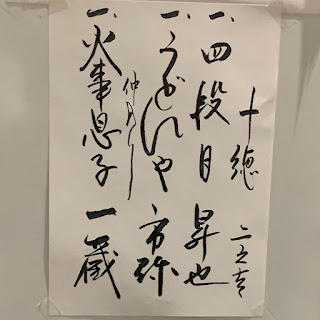 十徳
一、四段目 昇也
一、うどんや 市弥
仲入り
一、火事息子 一蔵